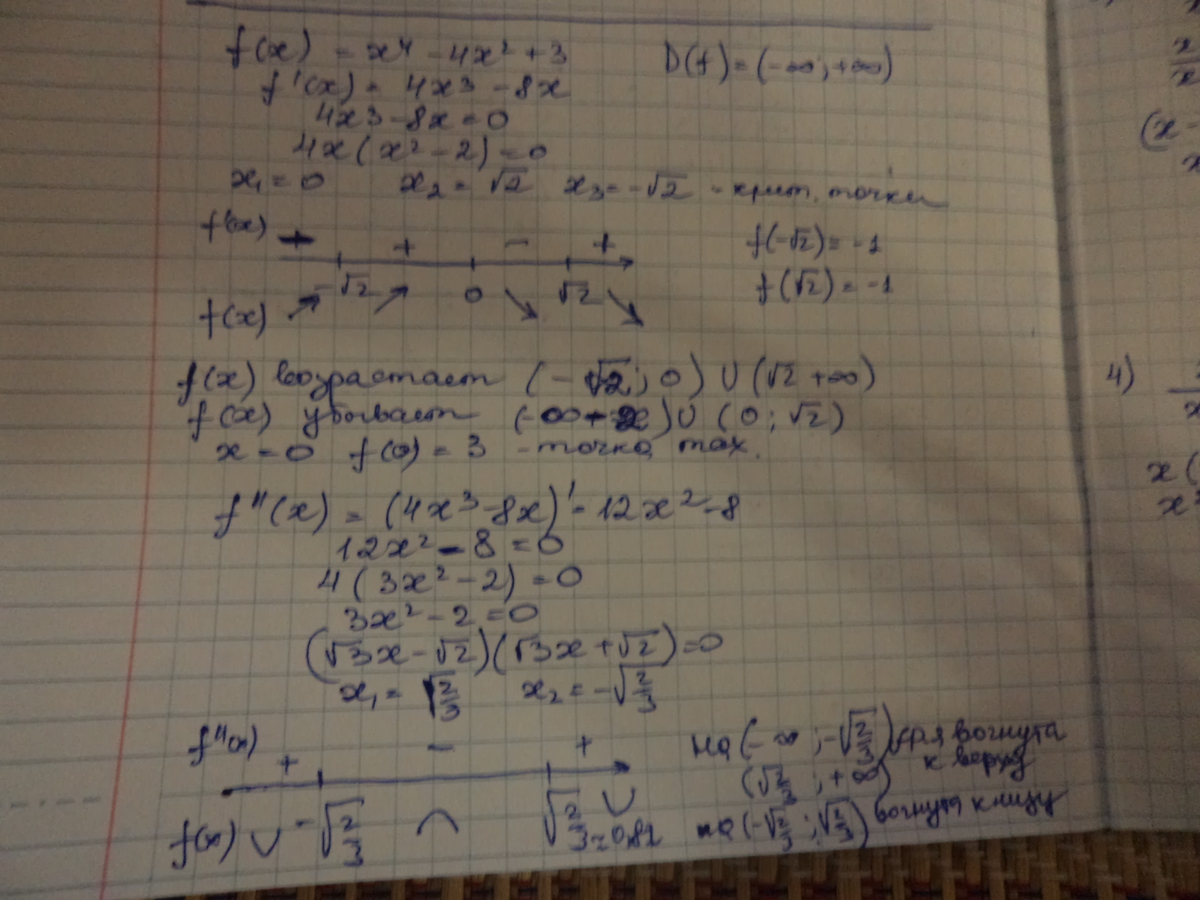 f(x) = x⁴ - 4x² + 3 D(f) = (-∞; +∞)
f'(x) = 4x3 - 8x
4x3 - 8x = 0
4x(x² - 2) = 0
x₁ = 0 x₂ = √2 x₃ = -√2 - крит. точки
f'(x) + - +
f(-√2) = -1
-√2 0 √2
f(√2) = -1
f(x) ↗ ↗ ↘ ↘
f(x) возрастает (-√2; 0) U (√2 +∞)
f(x) убывает (-∞ ) U (0; √2)
x = 0 f(0) = 3 - точка max.
f"(x) = (4x³ - 8x)' = 12x² - 8
12x² - 8 = 0
4(3x² - 2) = 0
3x² - 2 = 0
(√3x - √2)(√3x + √2) = 0
x₁ = √2/3 x₂ = -√2/3
f"(x) + - +
на (-∞; -√2/3) вогнута
к верху
(√2/3; +∞)
f(x) ∪ -√2/3 ∩ √2/3 ≈ 0,82 ∪
на (-√2/3; √2/3) вогнута к низу
4)
(x -
x(